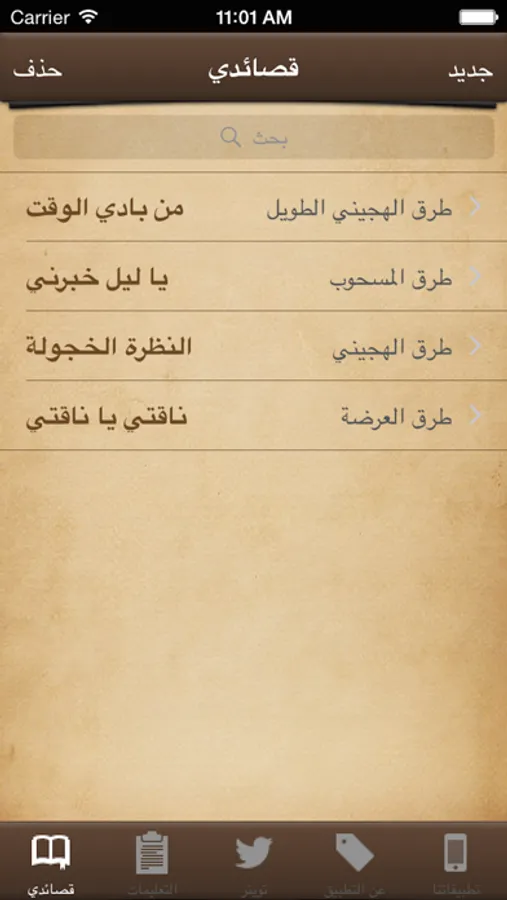 Carrier 11:01 AM
جديد قصائدي حذف
بحث
من بادي الوقت طرق الهجيني الطويل
يا ليل خبرني طرق المسحوب
النظرة الخجولة طرق الهجيني
ناقتي يا ناقتي طرق العرضة
قصائدي التعليمات تويتر عن التطبيق تطبيقاتنا